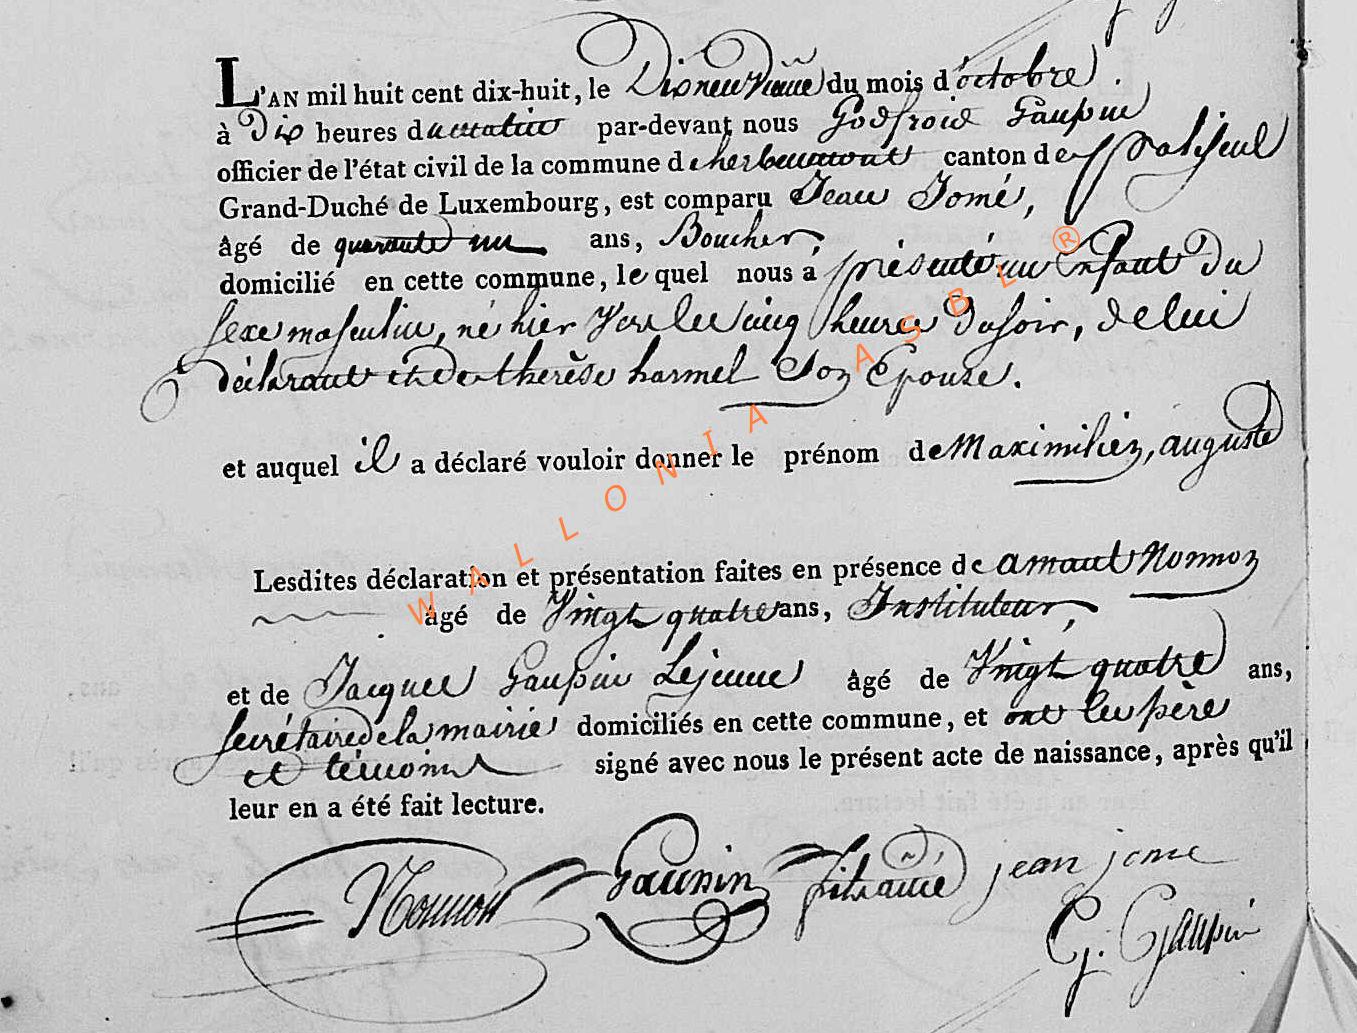 L'AN mil huit cent dix-huit, le Dixneuvième du mois d'octobre
à Dix heures du matin par-devant nous Godfroid Gaupin
officier de l'état civil de la commune d'herbeumont canton de paliseul
Grand-Duché de Luxembourg, est comparu Jean Jomé,
âgé de quarante un ans, Boucher,
domicilié en cette commune, le quel nous a présenté un Enfant du
sexe masculin, né hier vers les cinq heures du soir, de lui
déclarant et de thérèse harmel son Epouse.
et auquel il a déclaré vouloir donner le prénom de Maximilien, auguste
Lesdites déclaration et présentation faites en présence de amand Nonnon
âgé de Vingt quatre ans, Instituteur,
et de Jacques Gaupin Lejeune âgé de Vingt quatre ans,
secrétaire de la mairie domiciliés en cette commune, et ont les père
et témoins signé avec nous le présent acte de naissance, après qu'il
leur en a été fait lecture.
Nonnon Gaupin jean jome
G. Gaupin
WALLONIA ASBL ®